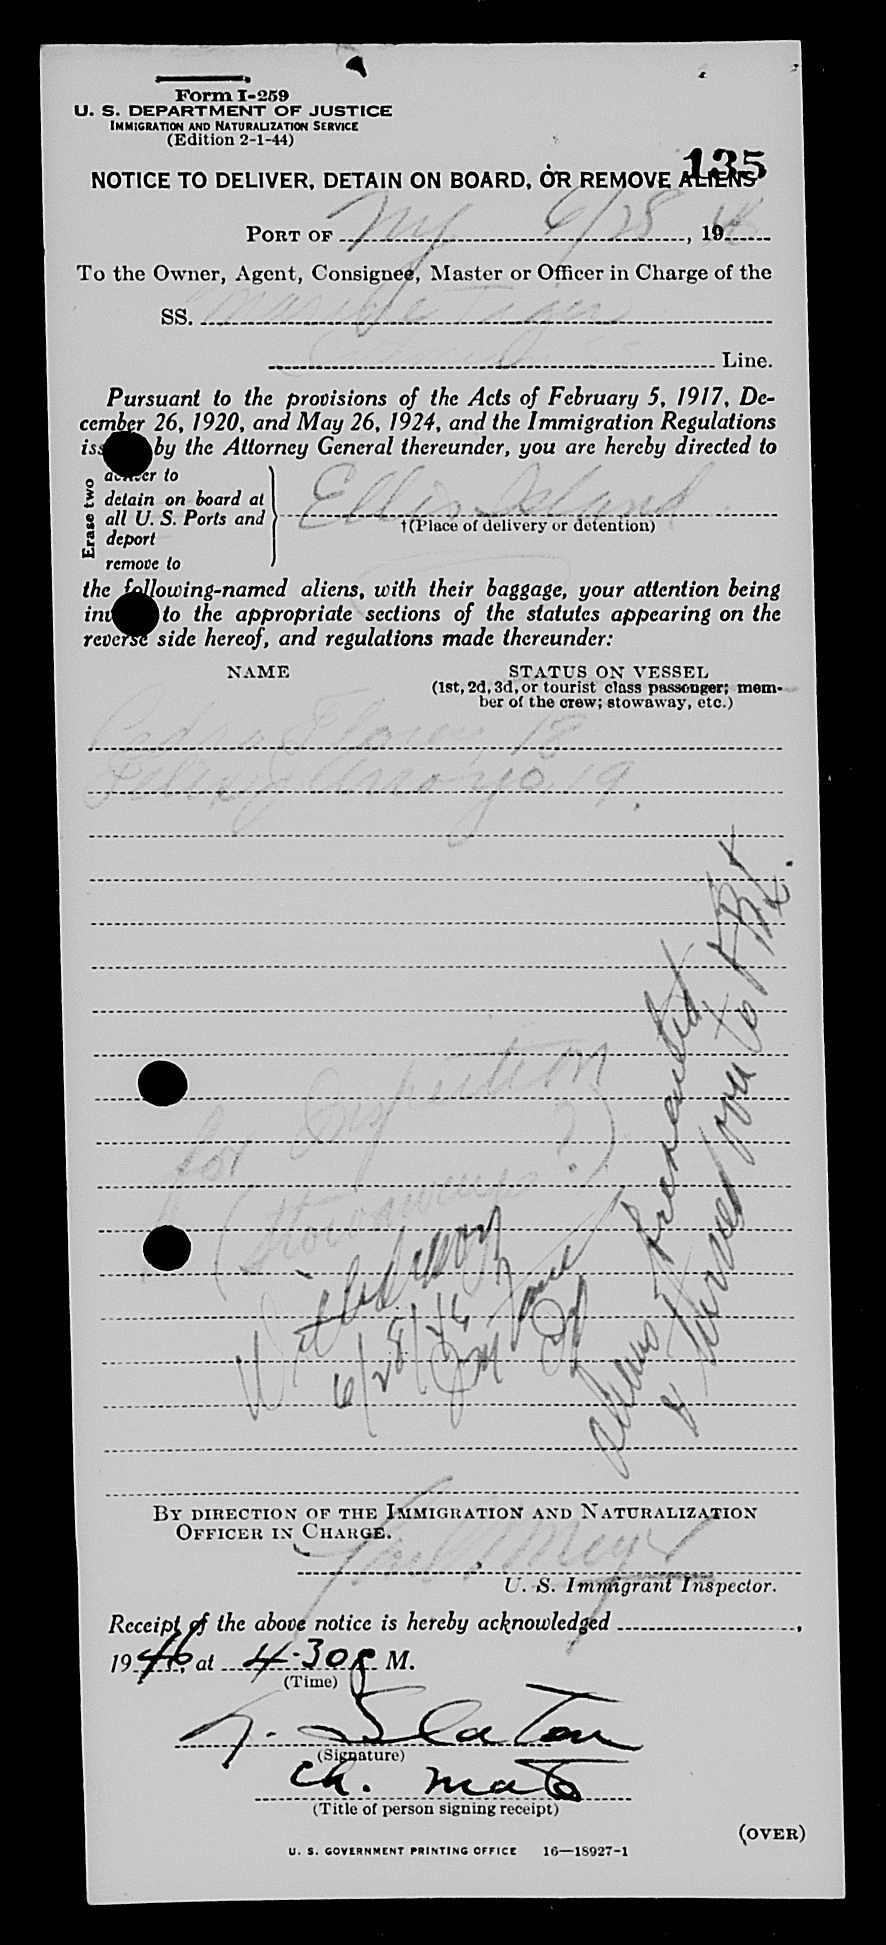 Form I-259
U. S. DEPARTMENT OF JUSTICE
IMMIGRATION AND NATURALIZATION SERVICE
(Edition 2-1-44)
135
NOTICE TO DELIVER, DETAIN ON BOARD, OR REMOVE ALIENS
PORT OF NY 6/28, 1946
To the Owner, Agent, Consignee, Master or Officer in Charge of the
SS. Marine Tiger
Line.
Pursuant to the provisions of the Acts of February 5, 1917, De-
cember 26, 1920, and May 26, 1924, and the Immigration Regulations
iss by the Attorney General thereunder, you are hereby directed to
Erase two
deliver to
detain on board at
all U. S. Ports and
deport
remove to
Ellis Island
†(Place of delivery or detention)
the following-named aliens, with their baggage, your attention being
inv to the appropriate sections of the statutes appearing on the
reverse side hereof, and regulations made thereunder:
NAME
STATUS ON VESSEL
(1st, 2d, 3d, or tourist class passenger; mem-
ber of the crew; stowaway, etc.)
Pedro Flores, 18
Felix Arroyo, 19.
for Inspection
(Stowaways?)
Withdrawn
6/28/46
aliens presented
& turned over to
BY DIRECTION OF THE IMMIGRATION AND NATURALIZATION
OFFICER IN CHARGE.
Meyer
U. S. Immigrant Inspector.
Receipt of the above notice is hereby acknowledged ,
1946, at 4:30 P M.
(Time)
Slaton
(Signature)
Ch. Mate
(Title of person signing receipt)
(OVER)
U. S. GOVERNMENT PRINTING OFFICE 16—18927-1